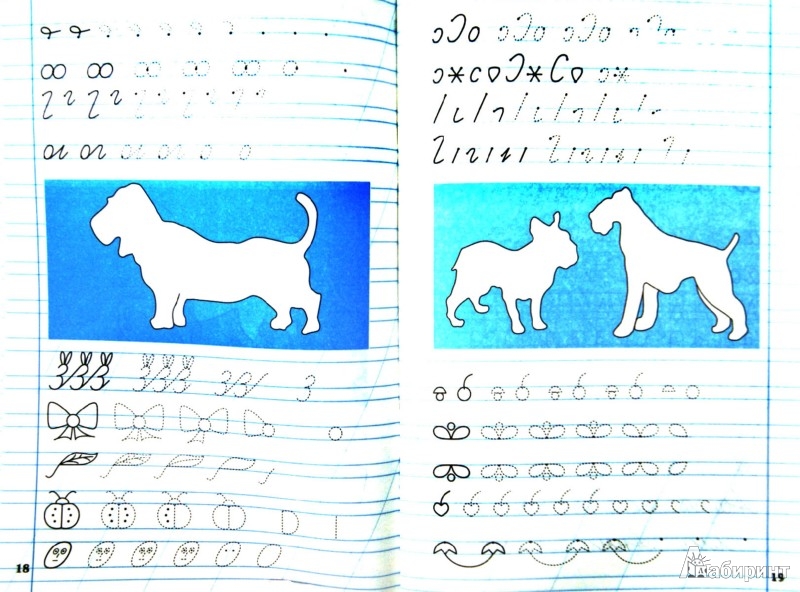 18
Лабиринт
19